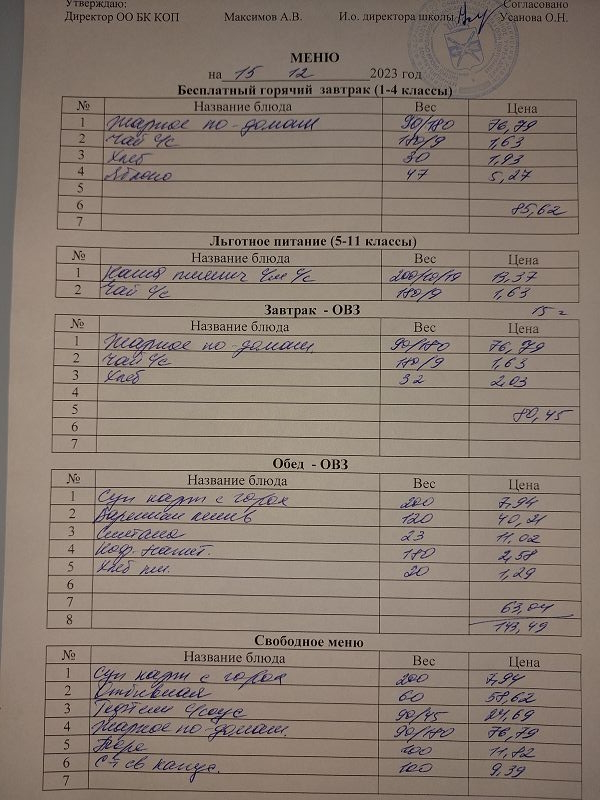 Утверждаю: Согласовано
Директор ОО БК КОП Максимов А.В. И.о. директора школы Усанова О.Н.
МЕНЮ
на 15 12 2023 год
Бесплатный горячий завтрак (1-4 классы)
№ Название блюда Вес Цена
1 Жаркое по-домаш 90/180 76,79
2 Чай с/с 180/9 1,63
3 Хлеб 30 1,93
4 Яблоко 47 5,27
5
6 85,62
7
Льготное питание (5-11 классы)
№ Название блюда Вес Цена
1 Каша пшенич с/м с/с 200/10/10 13,37
2 Чай с/с 180/9 1,63
Завтрак - ОВЗ 15=
№ Название блюда Вес Цена
1 Жаркое по-домаш. 90/180 76,79
2 Чай с/с 180/9 1,63
3 Хлеб 32 2,03
4
5 80,45
6
7
Обед - ОВЗ
№ Название блюда Вес Цена
1 Суп карт с горох 200 7,94
2 Вареники 120 40,21
3 Сметана 23 11,02
4 Коф. напит. 180 2,58
5 Хлеб пш. 20 1,29
6
7 63,04
8 143,49
Свободное меню
№ Название блюда Вес Цена
1 Суп карт с горох 200 7,94
2 Отбивная 60 58,62
3 Тефтели с/соус 90/45 24,69
4 Жаркое по-домаш. 90/180 76,79
5 Пюре 100 11,82
6 С-т св капус. 100 9,39
7